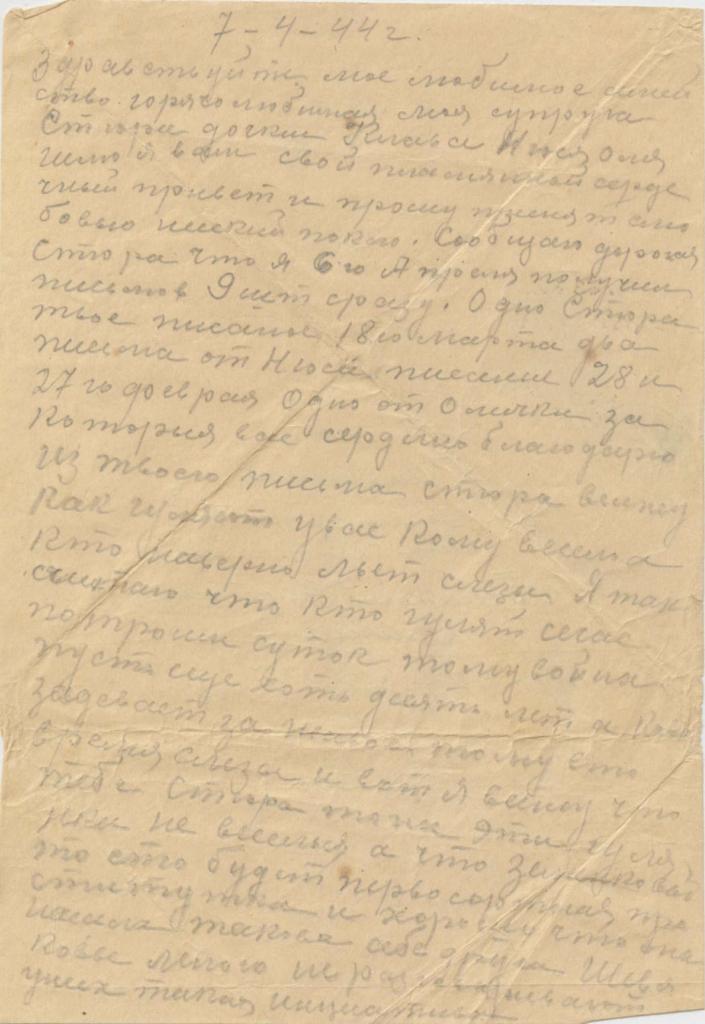 7-4-44 г.
Здравствуйте мое любимое семей
ство горячолюбимая моя супруга
Стюра дочки Клава Нюся Оля
шлю я вам свой пламянный серде
чный привет и прошу принят слю
бовью ниский поклон. Сообщаю дорогая
Стюра что я 6го Апреля получил
письмов 9 шт сразу. Одно Стюра
твое писаное 18го марта два
письма от Нюси писаные 28 и
27го февраля Одно от Олички за
которыя вас сердечно благодарю
из твоего письма стюра вижу
как гуляют увас кому весело а
кто наверно льет слезы Я так
считаю что кто гулят сечас
по трои суток тому война
пусть еще хоть десять лет а ково
задевает за тому ето
время слезы и вот я вижу что
тебе Стюра тоже эти гуля
нки не веселыя а что
то ето будит первосортная про
ститутка и хорошо что она
такова
ковы
уних такая инициатива